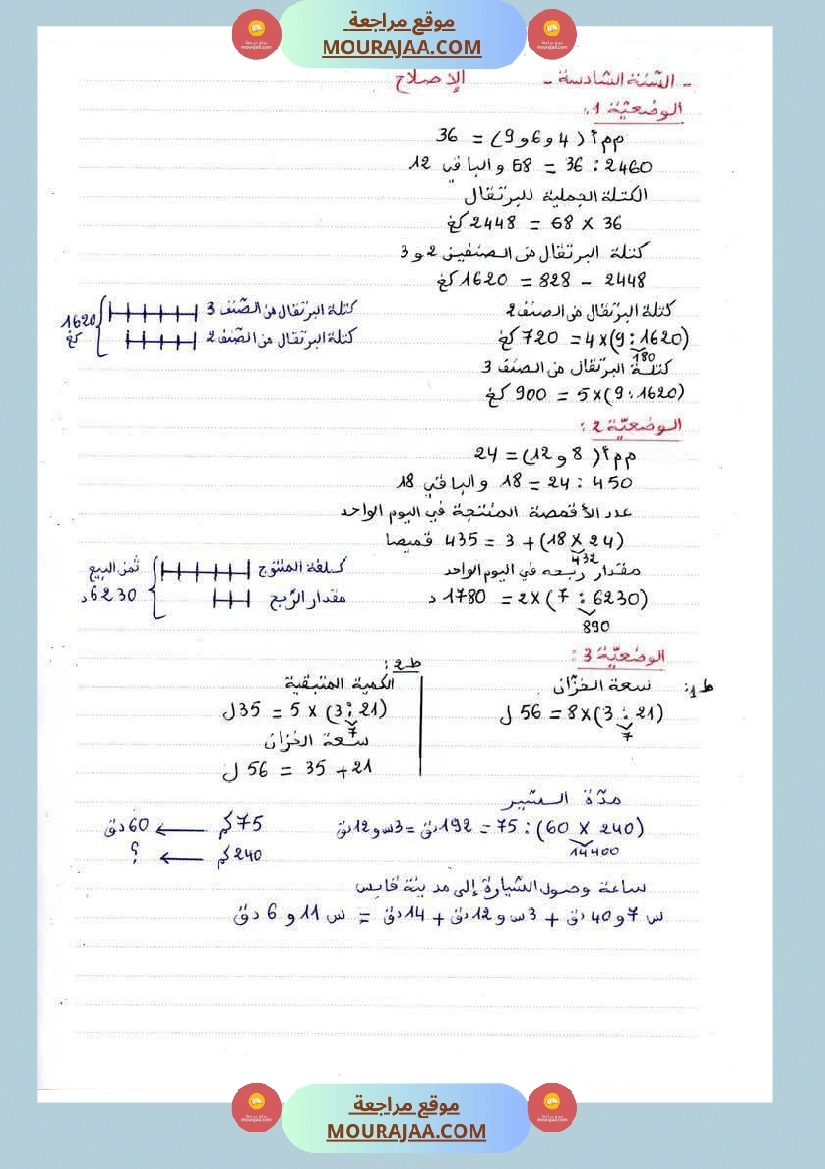 موقع مراجعة
MOURAJAA.COM
- السّنة السّادسة - الإصلاح
الوضعيّة 1:
م م أ (4 و 6 و 9) = 36
2460 : 36 = 68 والباقي 12
الكتلة الجملية للبرتقال
36 X 68 = 2448 كغ
كتلة البرتقال من الصنفين 2 و 3
2448 - 828 = 1620 كغ
كتلة البرتقال من الصنف 2
(1620 : 9) x 4 = 720 كغ
180
كتلة البرتقال من الصنف 3
(1620 : 9) x 5 = 900 كغ
كتلة البرتقال من الصّنف 3
كتلة البرتقال من الصّنف 2
1620 كغ
الوضعيّة 2:
م م أ (8 و 12) = 24
450 : 24 = 18 والباقي 18
عدد الأقمصة المنتجة في اليوم الواحد
(24 X 18) + 3 = 435 قميصا
432
مقدار ربحه في اليوم الواحد
(6230 : 7) x 2 = 1780 د
890
كلفة المنتوج
مقدار الرّبح
ثمن البيع
6230 د
الوضعيّة 3:
ط 1:
سعة الخزّان
(21 : 3) x 8 = 56 ل
7
ط 2:
الكمية المتبقية
(21 : 3) x 5 = 35 ل
7
سعة الخزان
21 + 35 = 56 ل
مدّة السير
(240 X 60) : 75 = 192 دق = 3 س و 12 دق
14400
75 كم ← 60 دق
240 كم ← ؟
ساعة وصول السّيارة إلى مدينة قابس
س 7 و 40 دق + 3 س و 12 دق + 14 دق = س 11 و 6 دق
موقع مراجعة
MOURAJAA.COM